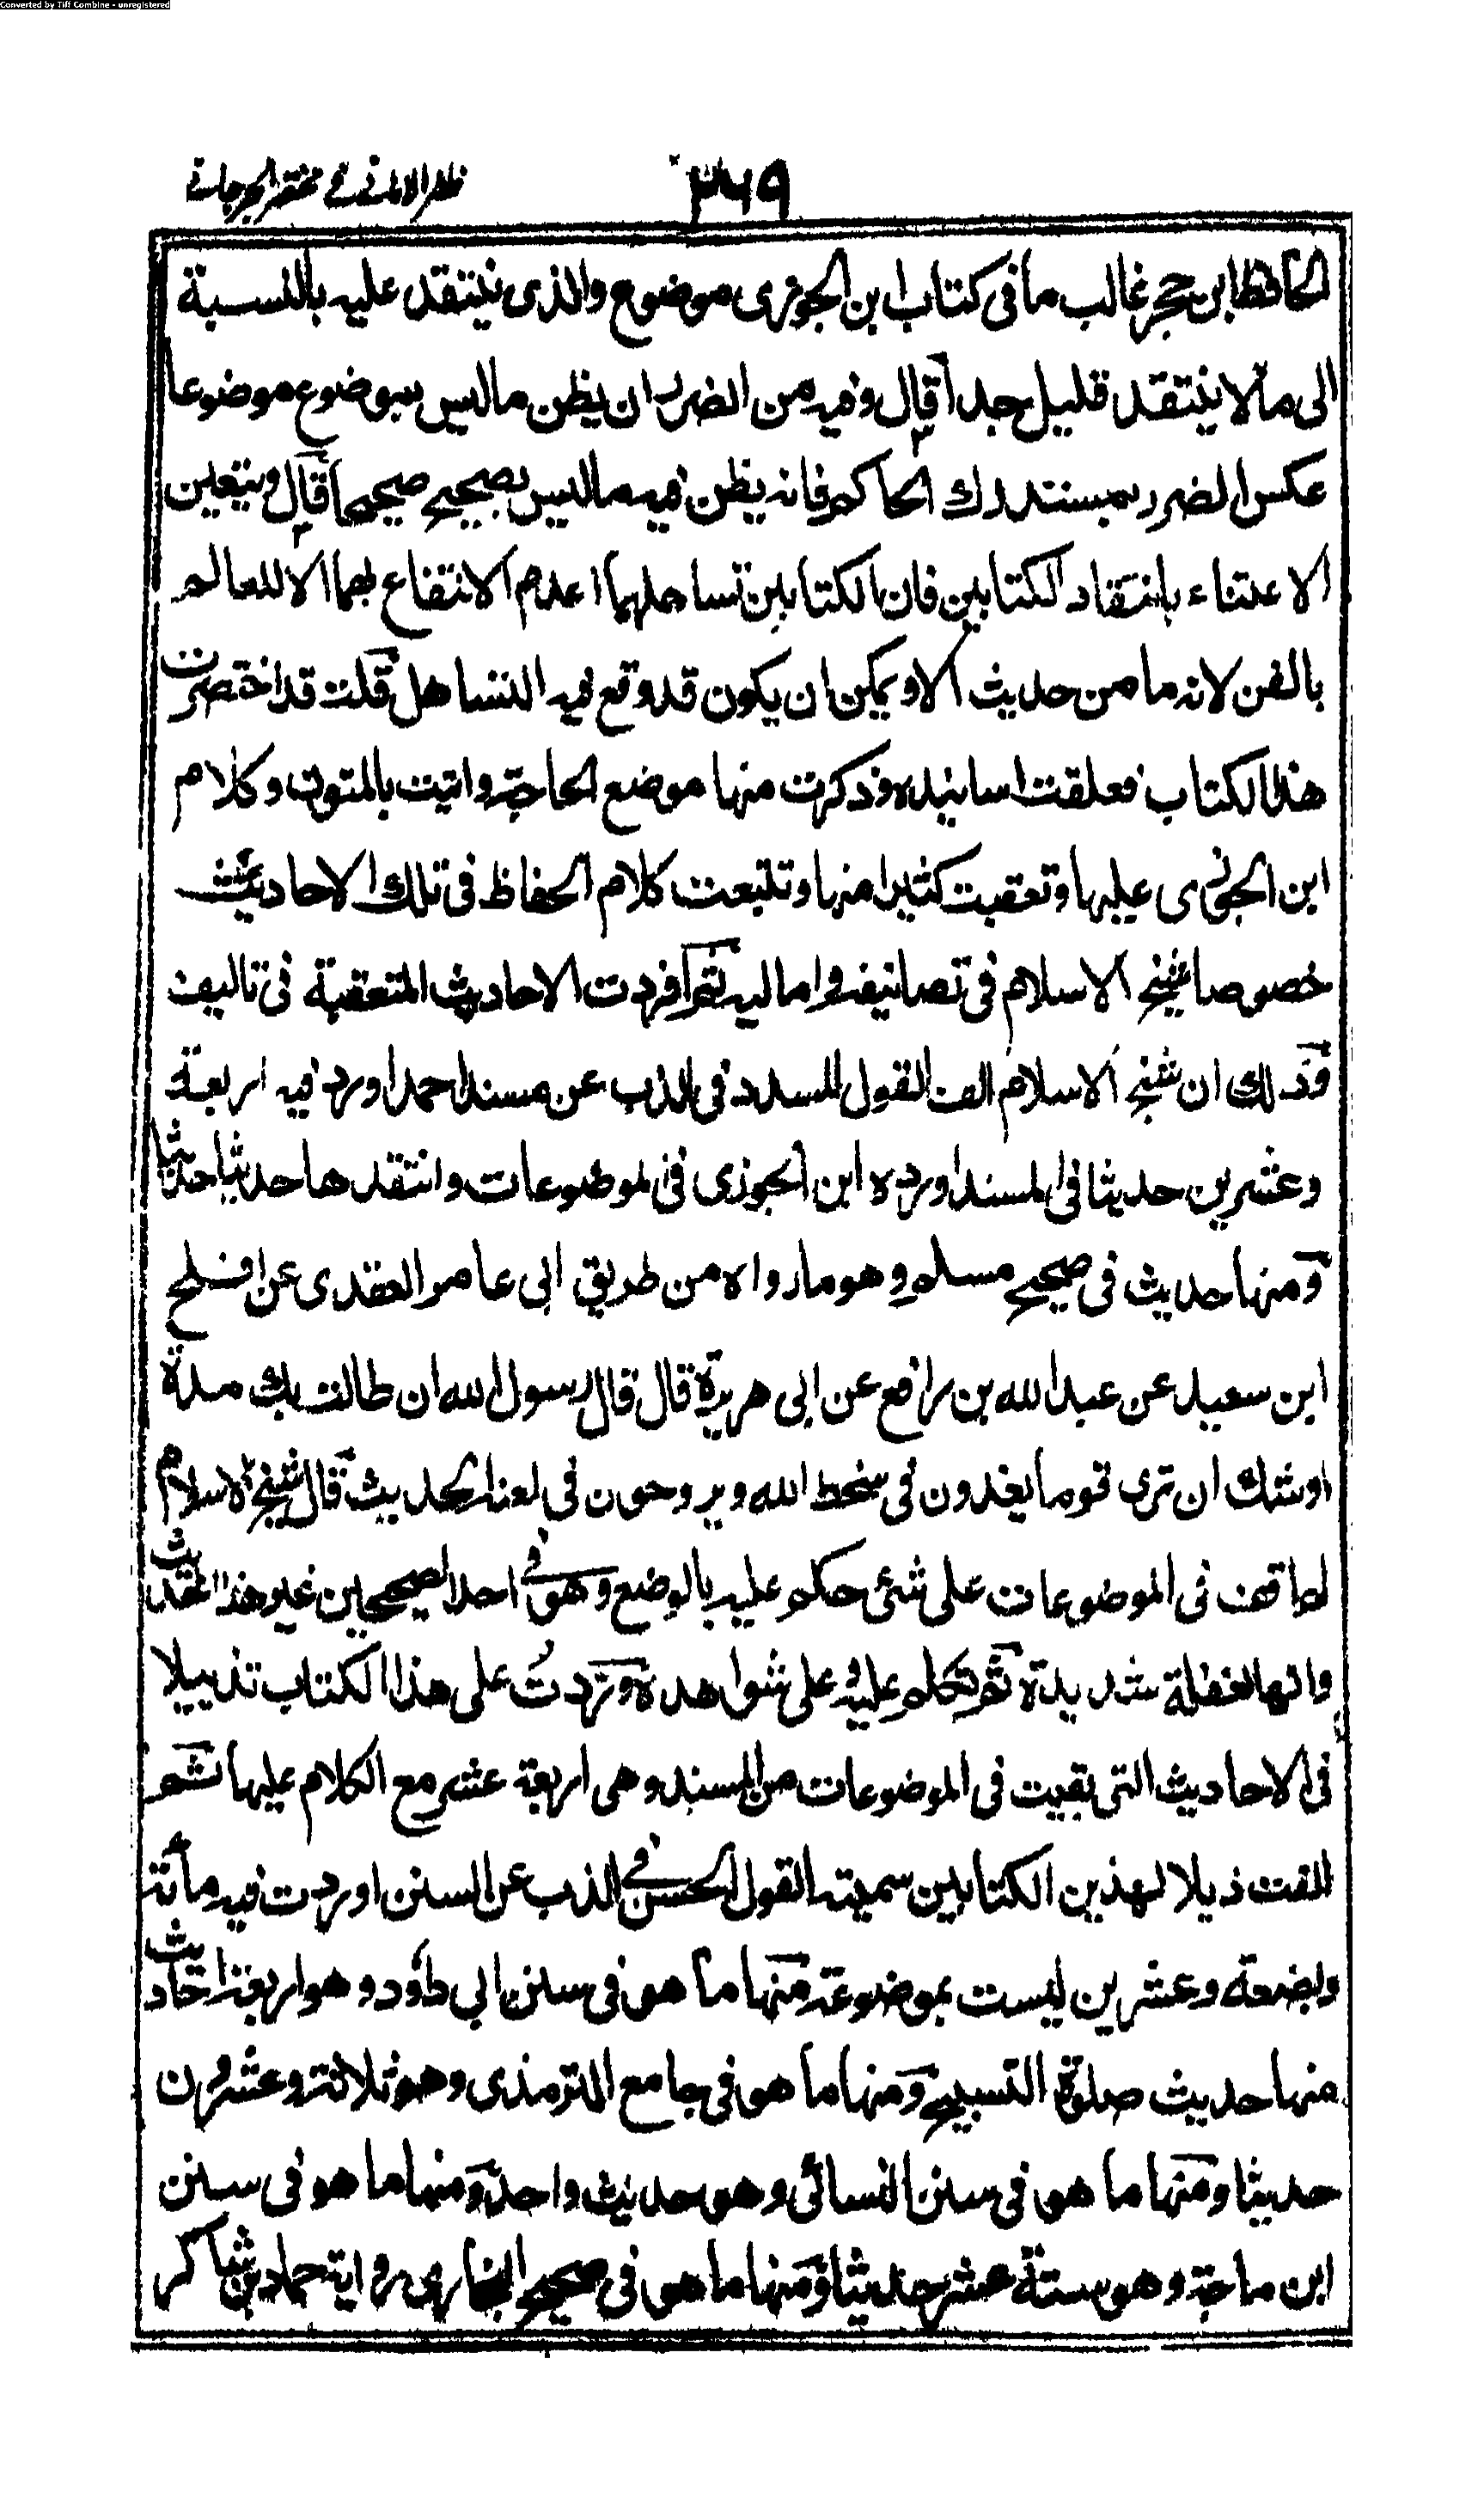 Converted by Tiff Combine - unregistered
٣٦٩ ظفر الامانى فى مختصر الجرجانى
الحافظ ابن حجر غالب ما فى كتاب ابن الجوزى موضوع والذى ينتقد عليه بالنسبة
الى ما لا ينتقد قليل جدا قال وفيه من الضرر ان يظن ما ليس بموضوع موضوعا
عكس الضرر بمستدرك الحاكم فانه يظن فيه ما ليس بصحيح صحيحا قال ويتعين
الاعتناء بانتقاد الكتابين فان الكتابين تساهلهما اعدم الانتفاع بهما الا للعالم
بالفن لانه ما من حديث الا ويمكن ان يكون قد وقع فيه التساهل قلت قد اختصرت
هذا الكتاب فعلقت اسانيده وذكرت منها موضع الحاجة واتيت بالمتون وكلام
ابن الجوزى عليها وتعقبت كثيرا منها وتتبعت كلام الحفاظ فى تلك الاحاديث
خصوصا شيخ الاسلام فى تصانيفه واماليه ثم افردت الاحاديث المتعقبة فى تاليف
وذلك ان شيخ الاسلام الف القول المسدد فى الذب عن مسند احمد اورد فيه اربعة
وعشرين حديثا فى المسند اورده ابن الجوزى فى الموضوعات وانتقدها حديثا حديثا
ومنها حديث فى صحيح مسلم وهو ما رواه من طريق ابى عامر العقدى عن افلح
ابن سعيد عن عبد الله بن رافع عن ابى هريرة قال قال رسول الله ان طالت بك مدة
اوشك ان ترى قوما يغدون فى سخط الله ويروحون فى لعنة الحديث قال شيخ الاسلام
لم اقف فى الموضوعات على شئ حكم عليه بالوضع وهو فى احد الصحيحين غير هذا الحديث
وانها لغفلة شديدة ثم تكلم عليه وعلى شواهده وزدتُ على هذا الكتاب تذييلا
فى الاحاديث التى بقيت فى الموضوعات من المسند وهى اربعة عشر مع الكلام عليها ثم
الفت ذيلا لهذين الكتابين سميته القول الحسن فى الذب عن السنن اوردت فيه مائة
وبضعة وعشرين ليست بموضوعة منها ما هو فى سنن ابى داؤد وهو اربعة احاديث
منها حديث صلوة التسبيح ومنها ما هو فى جامع الترمذى وهو ثلاثة وعشرون
حديثا ومنها ما هو فى سنن النسائى وهو حديث واحد ومنها ما هو فى سنن
ابن ماجة وهو ستة عشر حديثا ومنها ما هو فى صحيح البخارى رواية حماد بن شاكر